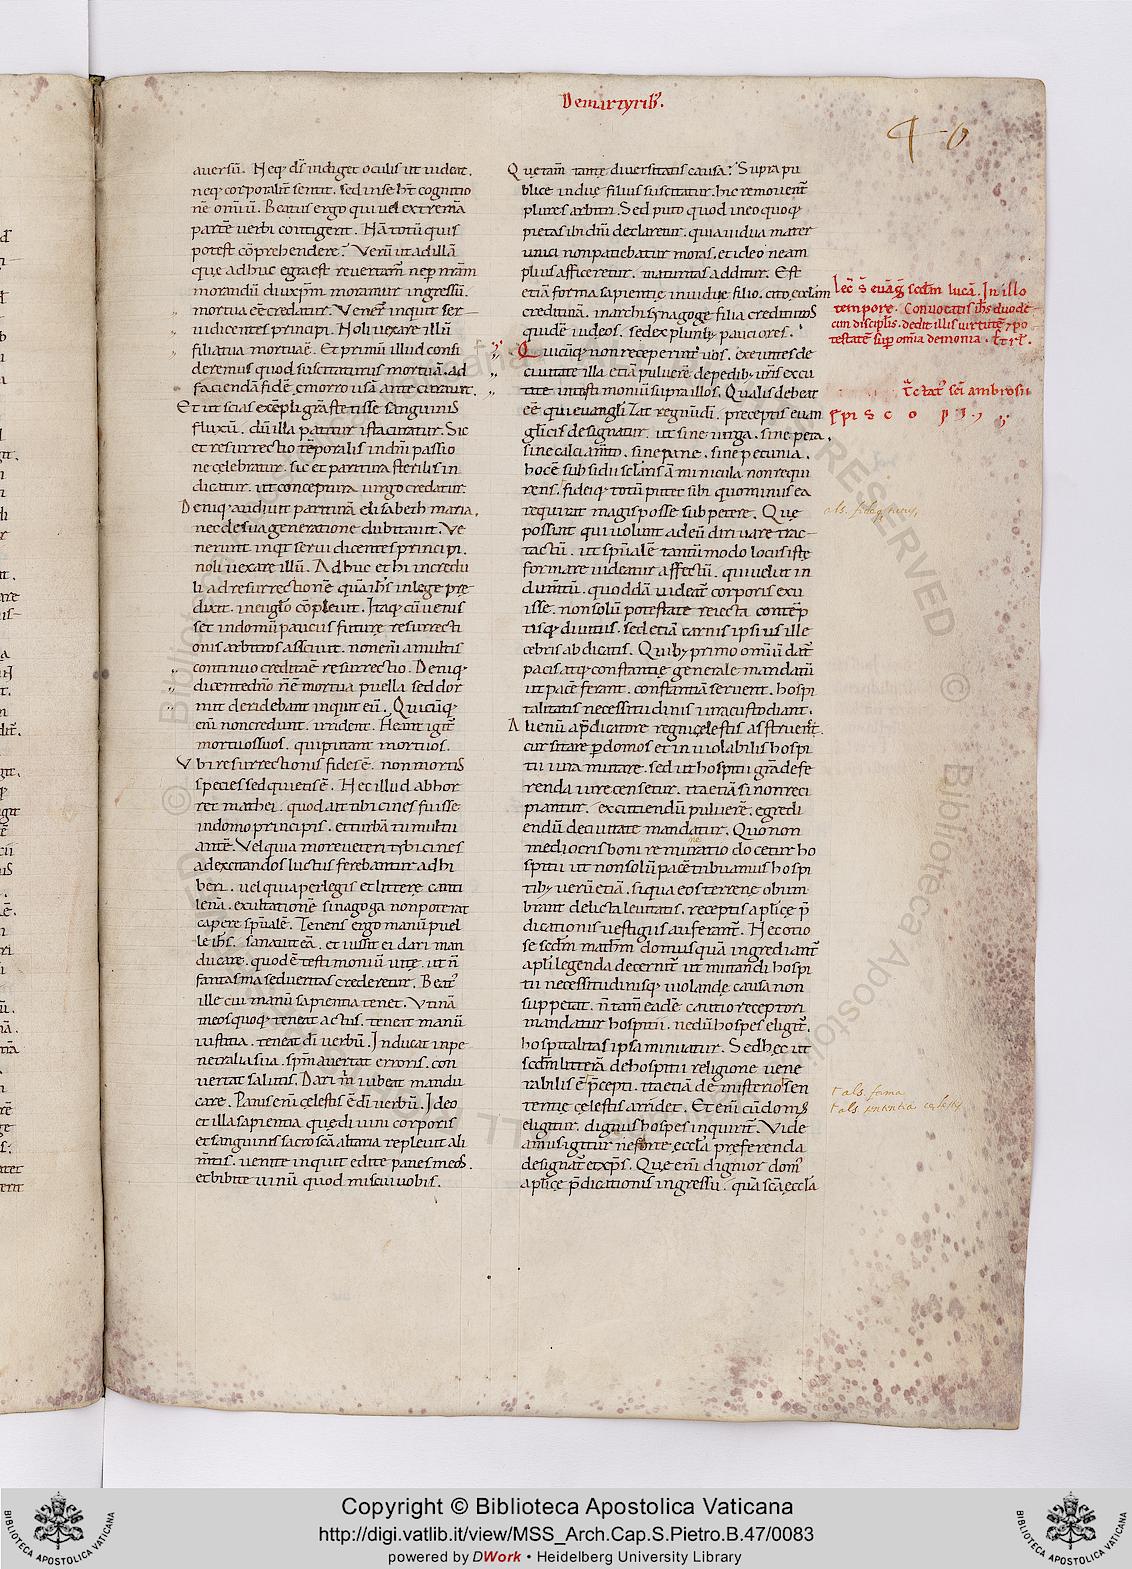 De martyrib⁊.
40
auersū. Neq; ds̄ indiget oculis ut uideat.
neq; corporalit̄ sentit. sed in se ht̄ cognitio
nē omīū. Beatus ergo qui uel extremā
partē uerbi contigerit. Nā totū quis
potest cōprehendere? Verū ut ad illā
que adhuc egra est reuertam̄ nep nr̄am
morandū diu xp̄m moramur ingressū.
mortua eē credatur. Vener̄ inquit ser
ui dicentes principi. Noli uexare illū
filia tua mortua ē. Et primū illud consi
deremus quod suscitaturus mortuā. ad
faciendā fidē emorroysā ante curauit.
Et ut scias exēpli gr̄a stetisse sanguinis
fluxū. dū illa patitur ista curatur. Sic
et resurrectio tēporalis in dn̄i passio
ne celebratur. sic et paritura sterilis in
dicatur. ut conceptura uirgo credatur.
Deniq; audiuit parturā elisabeth maria.
nec de sua generatione dubitauit. Ve
nerunt inq̄t serui dicentes principi.
noli uexare illū. Adhuc et hi incredu
li ad resurrectionē quā ih̄s in lege pre
dixit. in eugl̄o cōpleuit. Itaq; cū uenis
set in domū paucus future resurrecti
onis arbitros asciuit. non eni̅ a multis
continuo credita ē resurrectio. Deniq;
dicente dn̄o n̄ ē mortua puella sed dor
mit deridebant inquit eū. Quicūq;
eni̅ non credunt. irrident. Fleant igit̄
mortuos suos. qui putant mortuos.
Vbi resurrectionis fides ē. non mortis
species sed quiens ē. Nec illud abhor
ret mathei. quod ait tibicines fuisse
in domo principis. et turbā tumultu
antē. Vel quia more ueteri tybicines
ad excitandos luctus ferebantur adhi
beri. uel quia per legis et littere canti
lenā. exultationē sinagoga non poterat
capere spūalē. Tenens ergo manū puel
le ih̄s. sanauit eā. et iussit ei dari man
ducare. quod ē testimoniū uite. ut n̄
fantasma sed ueritas crederetur. Beat⁊
ille cui manū sapientia tenet. Vtinā
meos quoq; teneat actus. teneat manū
iustitia. teneat dī uerbū. Inducat in pe
netralia sua. sp̄m auertat erroris. con
uertat salutis. Dari m̄ iubeat mandu
care. Panis eni̅ celestis ē dī uerbū. Ideo
et illa sapientia que di uini corporis
et sanguinis sacro scā altaria repleuit ali
m̄tis. uenite inquit edite panes meos.
et bibite uinū quod miscui uobis.
Que tam̄ tante diuersitatis causa? Supra pu
blice in due filius suscitatur. hic remouent̄
plures arbitri. Sed puto quod in eo quoq;
pietas in dn̄i declaretur. quia uidua mater
unici non patiebatur moras. et ideo ne am
plius afficeretur. maturitas additur. Est
etiā forma sapientie in uidue filio. cito eccl̄am
credituriā. in archisynagoge filia credituros
quidē iudeos. sed ex plurib; pauciores.
Quicūq; non receperint uos. exeuntes de
ciuitate illa etiā puluerē de pedib; ur̄is excu
tite in testimoniū supra illos. Qualis debeat
eē qui euanglizat regnū dī. preceptis euan
glicis designatur. ut sine uirga. sine pera.
sine calciam̄to. sine pane. sine pecunia.
hoc ē subsidii sc̄laris āminicula non requi
rens. fideiq; totū putet sibi quo minus ea
requirat magis posse subpetere. Que
possunt qui uolunt ad eū diriuare trac
tatū. ut spūalē tantū modo locus iste
formare uideatur affectū. qui uelut in
dum̄tū. quoddā uideat̄ corporis exu
isse. non solū potestate reiecta contēp
tisq; diuitiis. sed etiā carnis ipsius ille
cebris abdicatis. Quib; primo omniū dat̄
pacis atq; constantie generale mandatū
ut pacē ferant. constantiā seruent. hospi
talitatis necessitudinis iura custodiant.
Alienū a p̄dicatore regni celestis astruent̄.
cursitare p̄ domos et inuiolabilis hospi
tii iura mutare. sed ut hospitii gr̄a defe
renda uire censetur. ita etiā si non reci
piantur. excutiendū puluerē. egredi
endū de ciuitate mandatur. Quo non
mediocris boni remuneratio docetur ho
spitii ut non solū pacē tribuamus hospi
tib; uerū etiā. si qua eos terrene obum
brant delicta leuitatis. receptis ap̄lice p̄
dicationis uestigiis auferant̄. Nec otio
se scd̄m math̄m domus quā ingrediant̄
apl̄i legenda decernit̄ ut mutandi hospi
tii necessitudinisq; uiolande causa non
suppetat. n̄ tam̄ eadē cautio receptori
mandatur hospitii. ne dū hospes eligit̄.
hospitalitas ipsa minuatur. Sed hec ut
scd̄m litterā de hospitii religione uene
rabilis ē p̄cepti. ita etiā de misterio sen
tentie celestis arridet. Et eni̅ cū domus
eligitur. dignus hospes inquirit̄. Vide
amus igitur ne forte eccl̄a preferenda
designat̄ et xp̄s. Que eni̅ dignior dom⁊
ap̄lice p̄dicationis ingressu. quā sc̄a eccl̄a
Lec̄ s̄ euāg scdm lucā. In illo
tempore. Conuocatis ih̄s duode
cim discipl̄is. dedit illis uirtutē ⁊ po
testatē sup̄ omīa demonia. Et rł.
Tractat⁊ sci ambrosii
episcopi.
als. fideq; tutus
als. forma
als. sententia celestis
Copyright © Biblioteca Apostolica Vaticana
http://digi.vatlib.it/view/MSS_Arch.Cap.S.Pietro.B.47/0083
powered by DWork • Heidelberg University Library